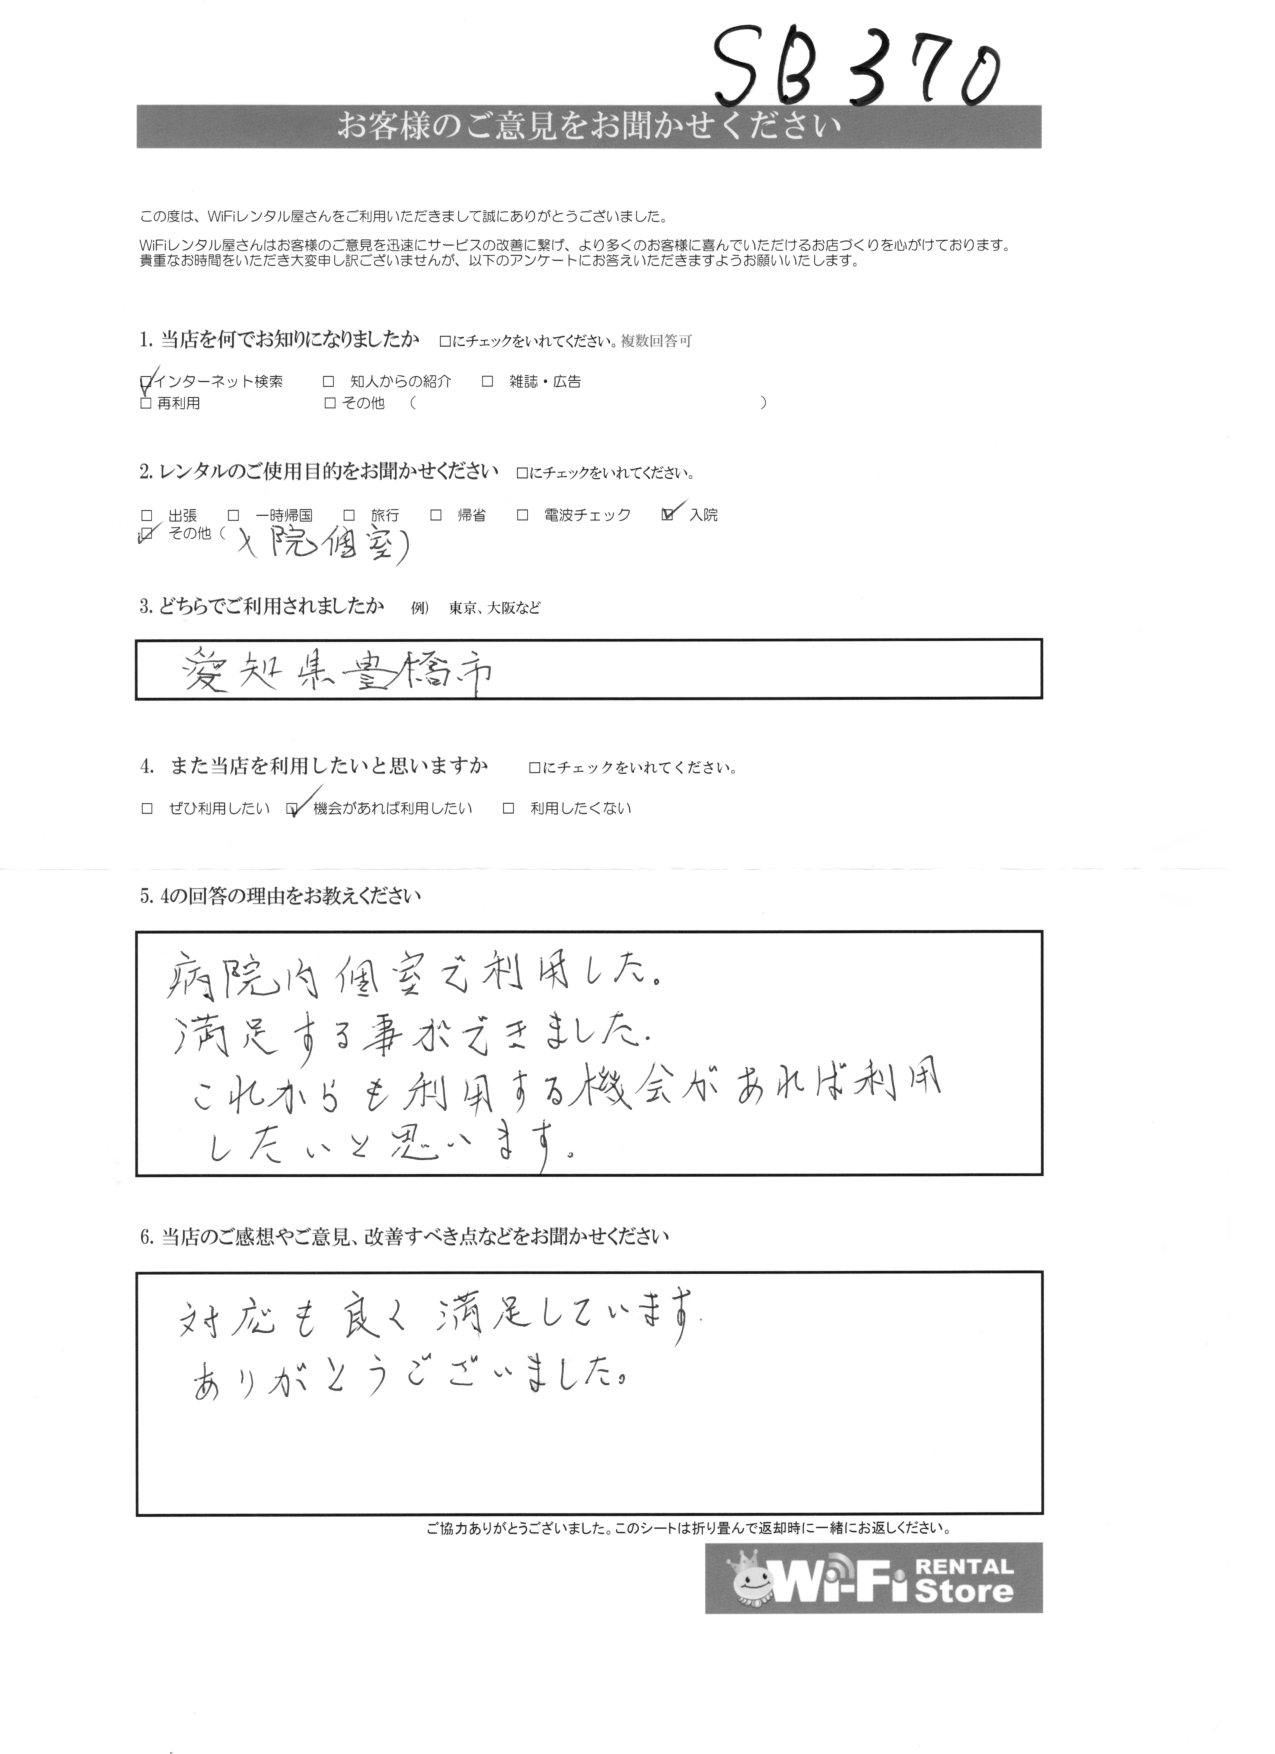 SB370
お客様のご意見をお聞かせください
この度は、WiFiレンタル屋さんをご利用いただきまして誠にありがとうございました。
WiFiレンタル屋さんはお客様のご意見を迅速にサービスの改善に繋げ、より多くのお客様に喜んでいただけるお店づくりを心がけております。
貴重なお時間をいただき大変申し訳ございませんが、以下のアンケートにお答えいただきますようお願いいたします。
1. 当店を何でお知りになりましたか □にチェックをいれてください。複数回答可
☑インターネット検索 □ 知人からの紹介 □ 雑誌・広告
□ 再利用 □ その他 （ ）
2. レンタルのご使用目的をお聞かせください □にチェックをいれてください。
□ 出張 □ 一時帰国 □ 旅行 □ 帰省 □ 電波チェック ☑ 入院
☑ その他（入院個室）
3. どちらでご利用されましたか 例） 東京、大阪など
愛知県豊橋市
4. また当店を利用したいと思いますか □にチェックをいれてください。
□ ぜひ利用したい ☑ 機会があれば利用したい □ 利用したくない
5. 4の回答の理由をお教えください
病院内個室で利用した。
満足する事ができました.
これからも利用する機会があれば利用
したいと思います。
6. 当店のご感想やご意見、改善すべき点などをお聞かせください
対応も良く満足しています.
ありがとうございました。
ご協力ありがとうございました。このシートは折り畳んで返却時に一緒にお返しください。
Wi-Fi RENTAL Store